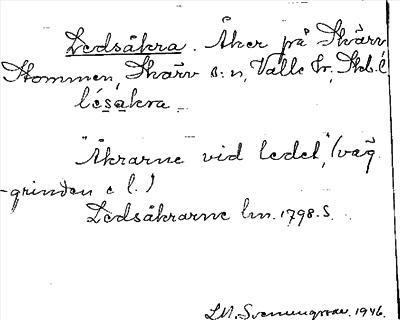 Ledsåkra. Åker på Skärv
Stommen, Skärv s:n, Valle hr, Skb. l.
lésa̱kra
"Åkrarne vid ledet", (väg
-grinden e l.)
Ledsåkrarne lm. 1798. S.
L.M. Svenungsson. 1946.